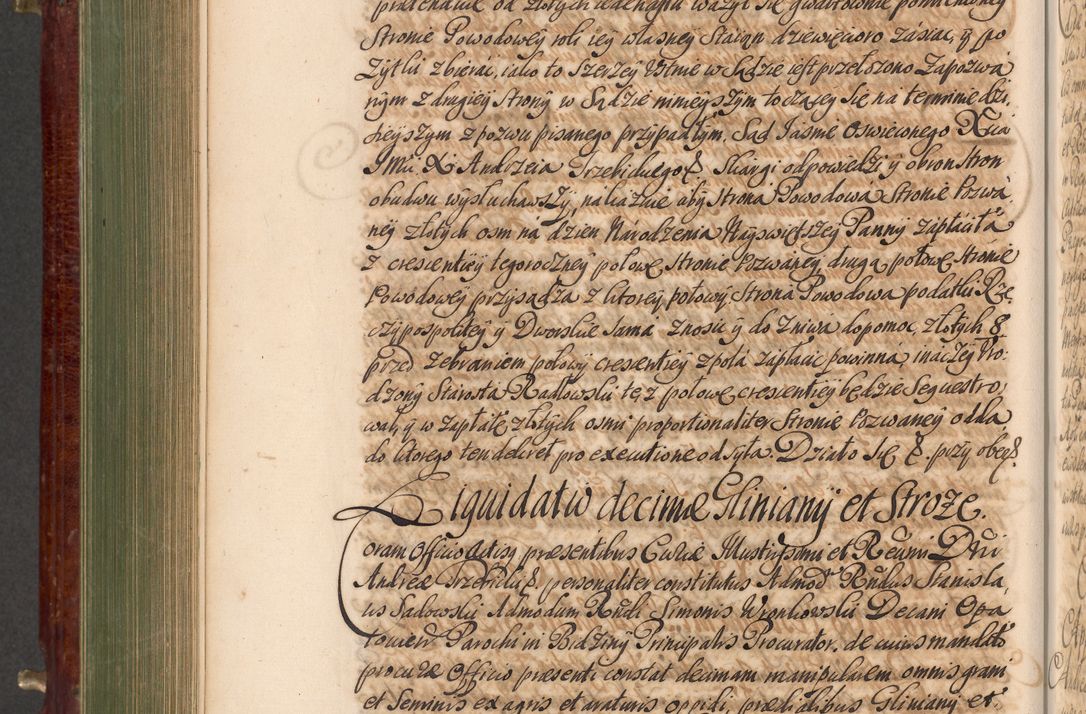 Stronie Powodowey roli iey własney Staian dziewięcioro zásiac, y po
Zytki zbierac, iako to Szerzey Vstnie w Sądzie iest przełozono Zapozwa
nym z drugiey Strony w Sądzie ninieyszym toczącey się na terminie dzi,
sieyszym z pozwu pisanego przypadłym. Sąd Jásnie Oswieconego Xcia
JMci X. Andrzeia Trzebickiego &. Skargi odpowiedzi y obron Stron
obudwu wysłuchawszy, nakazuie aby Strona Powodowa Stronie Pozwa,
ney złotych osm ná dzien Narodzenia Nayswiętrzey Panny zápłaciła
z crescentiey tegoroczney połowę Stronie Pozwaney, drugą połowę Stronie
Powodowey przysądza z ktorey połowy Strona Powodowa podatki Rze,
czypospolitey y Dworskie sama znosic y do żniwa dopomoc, złotych 8
przed zebraniem połowy crescentiey z pola zapłacic powinna, ináczey Vro,
dzony Starosta Radłowski tęż połowę crescentiey będzie Sequestro,
wał, y w zapłatę złotych osmi proportionaliter Stronie Pozwaney odda,
do ktorego ten dekret pro executione odsyła. Działo się &. przy obec &.
Liquidatio decimæ Gliniany et Stroze.
Coram Officio Actisq præsentibus Curiæ Illustrissimi et Reverendissimi Dni
Andreæ Trzebicki &. personaliter constitutus Admod Rndus Stanisla,
us Sadowski Admodum Rndi Simonis Wronkowski Decani Opa
toviens Parochi in Bidziny Principalis Procurator, de cuius mandato
procuræ Officio præsenti constat decimam manipularem omnis grani
et Seminis ex agris et araturis oppidi, prædialibus Gliniany et